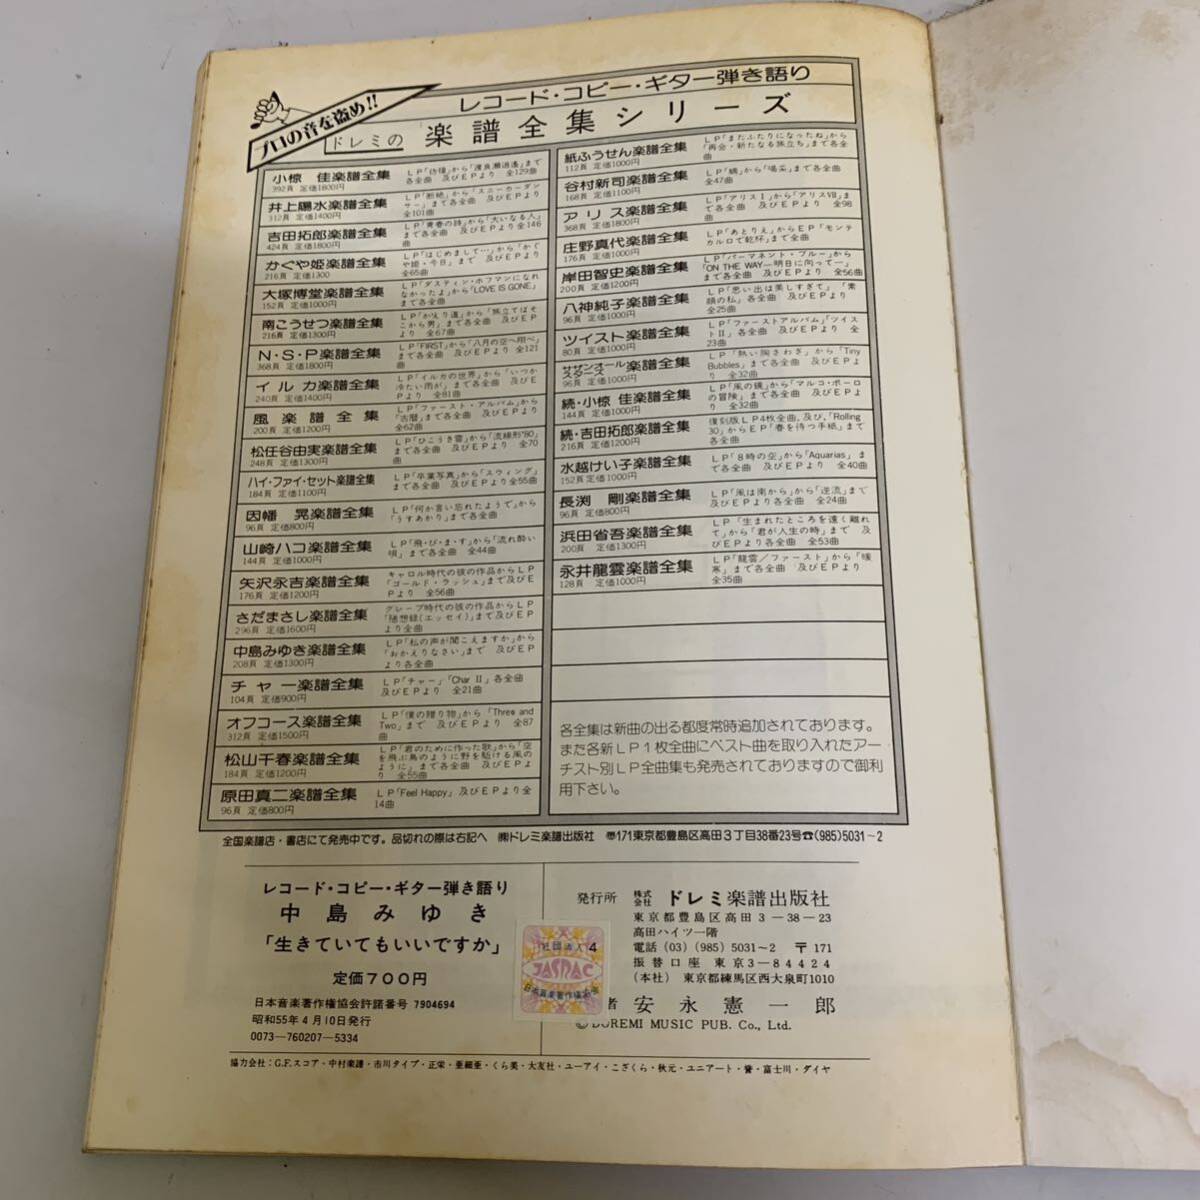 プロの音を盗め!!
レコード・コピー・ギター弾き語り
ドレミの 楽譜全集シリーズ
小椋 佳楽譜全集
392頁 定価1800円
LP「彷徨」から「渡良瀬逍遙」まで
各全曲 及びEPより 全129曲
井上陽水楽譜全集
312頁 定価1400円
LP「断絶」から「スニーカーダン
サー」まで各全曲 及びEPより
全101曲
吉田拓郎楽譜全集
424頁 定価1800円
LP「青春の詩」から「大いなる人」
まで各全曲 及びEPより 全146
曲
かぐや姫楽譜全集
216頁 定価1300
LP「はじめまして…」から「かぐ
や姫・今日」まで 及びEPより
全65曲
大塚博堂楽譜全集
152頁 定価1000円
LP「ダスティン・ホフマンになれ
なかったよ」から「LOVE IS GONE」
まで各全曲
南こうせつ楽譜全集
216頁 定価1300円
LP「かえり道」から「旅立てばそ
こから男」まで各全曲 及びEP
より 全67曲
N・S・P楽譜全集
368頁 定価1800円
LP「FIRST」から「八月の空へ翔べ」
まで各全曲 及びEPより 全121
曲
イルカ楽譜全集
240頁 定価1400円
LP「イルカの世界」から「いつか
冷たい雨が」まで各全曲 及びE
Pより 全81曲
風楽譜全集
200頁 定価1200円
LP「ファースト・アルバム」から
「古暦」まで各全曲 及びEPより
全62曲
松任谷由実楽譜全集
248頁 定価1300円
LP「ひこうき雲」から「流線形'80」
まで各全曲 及びEPより 全70
曲
ハイ・ファイ・セット楽譜全集
184頁 定価1100円
LP「卒業写真」から「スウィング」
まで各全曲 及びEPより 全55曲
因幡 晃楽譜全集
96頁 定価800円
LP「何か言い忘れたようで」から
「うすあかり」まで各全曲
山崎ハコ楽譜全集
144頁 定価1000円
LP「飛・び・ま・す」から「流れ酔い
唄」まで各全曲 全44曲
矢沢永吉楽譜全集
176頁 定価1200円
キャロル時代の彼の作品からLP
「ゴールド・ラッシュ」まで及びE
Pより 全56曲
さだまさし楽譜全集
296頁 定価1600円
グレープ時代の彼の作品からLP
「随想録(エッセイ)」まで及びEP
より
中島みゆき楽譜全集
208頁 定価1300円
LP「私の声が聞こえますか」から
「おかえりなさい」まで 及びEP
より各全曲
チャー楽譜全集
104頁 定価900円
LP「チャー」「Char II」各全曲
及びEPより 全21曲
オフコース楽譜全集
312頁 定価1500円
LP「僕の贈り物」から「Three and
Two」まで 及びEPより 全87
曲
松山千春楽譜全集
184頁 定価1200円
LP「君のために作った歌」から「空
を飛ぶ鳥のように野を駈ける風の
ように」まで各全曲 及びEPよ
り 全55曲
原田真二楽譜全集
96頁 定価800円
LP「Feel Happy」及びEPより全
14曲
紙ふうせん楽譜全集
112頁 定価1000円
LP「またふたりになったね」から
「再会・新たなる旅立ち」まで各全
曲
谷村新司楽譜全集
168頁 定価1100円
LP「蜩」から「喝采」まで各全曲
全47曲
アリス楽譜全集
368頁 定価1800円
LP「アリスI」から「アリスVII」ま
で各全曲 及びEPより 全98
曲
庄野真代楽譜全集
176頁 定価1000円
LP「あとりえ」からEP「モンテ
カルロで乾杯」まで全曲
岸田智史楽譜全集
200頁 定価1200円
LP「パーマネント・ブルー」から
「ON THE WAY―明日に向って―」
まで各全曲 及びEPより 全56曲
八神純子楽譜全集
96頁 定価1000円
LP「思い出は美しすぎて」「素
顔の私」各全曲 及びEPより
全25曲
ツイスト楽譜全集
80頁 定価1000円
LP「ファーストアルバム」「ツイス
トII」各全曲 及びEPより 全
23曲
サザンオールスターズ楽譜全集
96頁 定価1000円
LP「熱い胸さわぎ」から「Tiny
Bubbles」まで各全曲 及びEP
より 全32曲
続・小椋 佳楽譜全集
144頁 定価1000円
LP「風の鏡」から「マルコ・ポーロ
の冒険」まで各全曲 及びEPよ
り 全32曲
続・吉田拓郎楽譜全集
216頁 定価1200円
復刻版LP4枚全曲、及び、「Rolling
30」からEP「春を待つ手紙」まで
各全曲
水越けい子楽譜全集
152頁 定価1000円
LP「8時の空」から「Aquarias」ま
で各全曲 及びEPより 全40曲
長渕 剛楽譜全集
96頁 定価800円
LP「風は南から」から「逆流」まで
及びEPより各全曲 全24曲
浜田省吾楽譜全集
200頁 定価1300円
LP「生まれたところを遠く離れ
て」から「君が人生の時」まで及
びEPより各全曲 全53曲
永井龍雲楽譜全集
128頁 定価1000円
LP「龍雲/ファースト」から「暖
寒」まで各全曲 及びEPより
全35曲
各全集は新曲の出る都度常時追加されております。
また各新LP1枚全曲にベスト曲を取り入れたアー
チスト別LP全曲集も発売されておりますので御利
用下さい。
全国楽譜店・書店にて発売中です。品切れの際は右記へ ㈱ドレミ楽譜出版社 〠171東京都豊島区高田3丁目38番23号☎(985)5031~2
レコード・コピー・ギター弾き語り
中島みゆき
「生きていてもいいですか」
定価700円
日本音楽著作権協会許諾番号 7904694
昭和55年4月10日発行
0073―760207―5334
社団法人 4
JASRAC
日本音楽著作権協会
発行所 株式会社 ドレミ楽譜出版社
東京都豊島区高田3―38―23
高田ハイツ一階
電話(03)(985)5031~2 〒171
振替口座 東京3―84424
(本社) 東京都練馬区西大泉町1010
者 安永憲一郎
©DOREMI MUSIC PUB. Co., Ltd.
協力会社:G.F.スコア・中村楽譜・市川タイプ・正栄・亜細亜・くら美・大友社・ユーアイ・こざくら・秋元・ユニアート・誉・富士川・ダイヤ